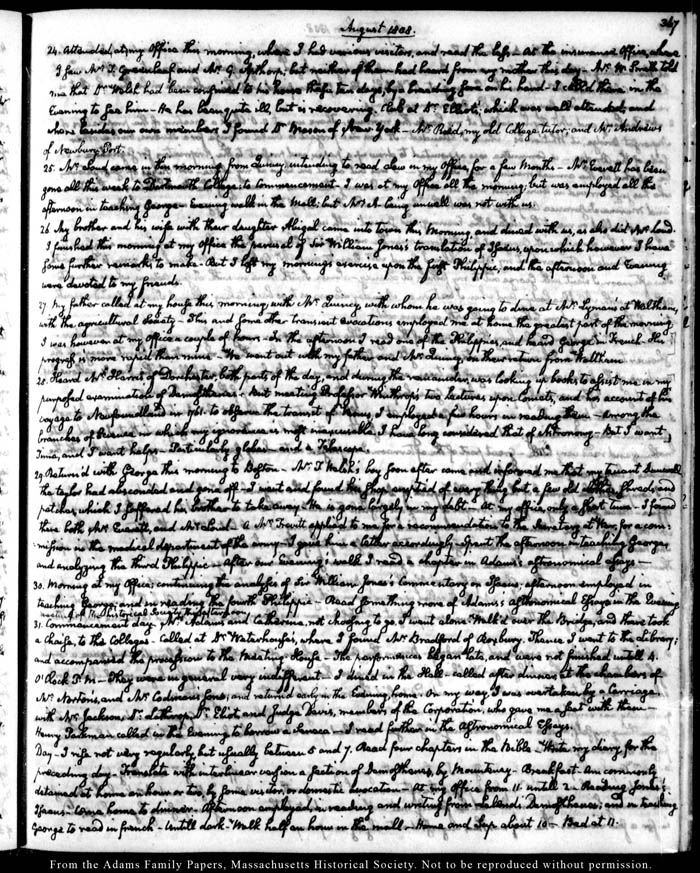 August 1808.
367
24. Attended, at my Office this morning, where I had various visitors, and read the laws – At the insurance Office, where
I saw Mr. T. Greenleaf and Mr. G. Apthorp; but neither of them had heard from my mother this day – Mr. W. Smith told
me that Dr. Welsh had been confined to his house these ten days, by a bleeding sore on his hand – I called there in the
Evening to see him – He has been quite ill, but is recovering. Club at Dr. Eliot's; which was well attended; and
where besides our own members I found Dr. Mason of New York – Mr. Read, my old College tutor; and Mr. Andrews
of Newbury-Port.
25. Mr. Loud came in this morning from Quincy, intending to read Law in my Office, for a few Months – Mr. Everett has been
gone all this week to Dartmouth College, to Commencement – I was at my Office all the morning; but was employed all the
afternoon in teaching George – Evening walk in the Mall; but Mrs. A. being unwell was not with us.
26. My brother and his wife with their daughter Abigail came into town this Morning, and dined with us, as also did Mr. Loud.
I finished this morning at my office the perusal of Sir William Jones's translation of Isaeus, upon which however I have
some further remarks to make – But I left my morning's exercise upon the first Philippic, and the afternoon and Evening
were devoted to my friends.
27. My father called at my house this morning, with Mr. Quincy, with whom he was going to dine at Mr. Lyman's at Waltham,
with the agricultural Society – This and some other transient avocations employed me at home the greatest part of the morning
I was however at my office a couple of hours – In the afternoon I read one of the Philippics, and heard George in French. His
progress is more rapid than mine – We went out with my father and Mr. Quincy on their return from Waltham.
28. Heard Mr. Harris of Dorchester both parts of the day, and during the remainder, was looking up books to assist me in my
purposed examination of Demosthenes – But meeting Professor Winthrop's two lectures upon Comets, and his account of his
voyage to Newfoundland in 1761. to observe the transit of Venus, I employed a few hours in reading them – Among the
branches of Science in which my ignorance is most inexcusable I have long considered that of Astronomy – But I want
Time, and I want helps – Particularly globes – and a Telescope.
29. Return'd with George this morning to Boston – Mr. T. Welsh's boy soon after came and informed me that my tenant
the taylor had absconded and gone off – I went and found his shop emptied of every thing but a few old shreds and
patches, which I suffered his brother to take away – He is gone largely in my debt – At my office, only a short time – I found
there both Mr. Everett, and Mr. Loud – A Mr. Trevitt applied to me for a recommendation to the Secretary at War, for a com-
mission in the medical department of the army – I gave him a letter accordingly. Spent the afternoon in teaching George,
and analyzing the third Philippic – After our Evening's walk I read a chapter in Adams's astronomical essays –
30. Morning at my Office; continuing the analysis of Sir William Jones's Commentary on Isaeus; afternoon employed in
teaching George, and in reading the fourth Philippic – Read something more of Adams's astronomical Essays in the Evening
meeting of the historical Society this afternoon
31. Commencement day. Mrs. Adams and Catherine, not chusing to go, I went alone. Walk'd over the Bridge, and there took
a Chaise, to the Colleges – Called at Dr. Waterhouse's, where I found Mr. Bradford of Roxbury. Thence I went to the Library;
and accompanied the procession to the Meeting-House – The performances began late, and were not finished untill 4.
O'Clock P.M – They were in general very indifferent – I dined in the Hall – called after dinner at the chambers of
Mr. Norton's, and Mr. Codman's sons; and returned early in the Evening, home. On my way, I was overtaken by a Carriage
with Mr. Jackson, Dr. Lathrop, Dr. Eliot and Judge Davis, members of the Corporation, who gave me a seat with them –
Henry Parkman called in the Evening to borrow a Seneca – I read further in the Astronomical Essays.
Day – I rise not very regularly, but usually between 5 and 7. Read four chapters in the Bible – Write my diary for the
preceding day – Translate with interlinear version a section of Demosthenes, by Mounteney – Breakfast. Am commonly
detained at home an hour or two, by some visitor, or domestic avocation – At my Office from 11. untill 2 – Reading Jones's
Isaeus – Come home to dinner – Afternoon employed in reading and writing from Leland's Demosthenes; and in teaching
George to read in french – Untill dark. Walk half an hour in the mall – Home and sup about 10 – Bed at 11.
From the Adams Family Papers, Massachusetts Historical Society. Not to be reproduced without permission.